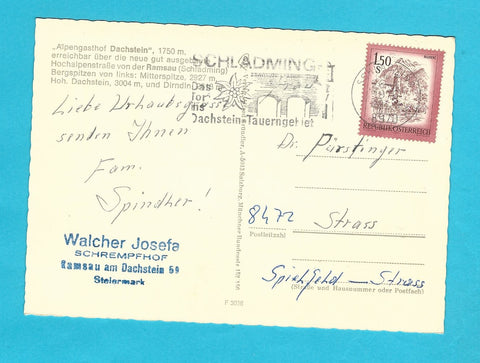 „Alpengasthof Dachstein“, 1750 m,
erreichbar über die neue gut ausgebaute
Hochalpenstraße von der Ramsau (Schladming)
Bergspitzen von links: Mitterspitze, 2927 m
Hoh. Dachstein, 3004 m, und Dirndln
Liebe Urlaubsgrüsse
senden Ihnen
Fam.
Spindler!
Walcher Josefa
SCHREMPFHOF
Ramsau am Dachstein 59
Steiermark
SCHLADMING
Das
Tor
ins
Dachstein-Tauerngebiet
8970
1.50
S
REPUBLIK ÖSTERREICH
Dr. Pürstinger
8472 Strass
Postleitzahl
Spielfeld – Strass
(Straße und Hausnummer oder Postfach)
F 3036